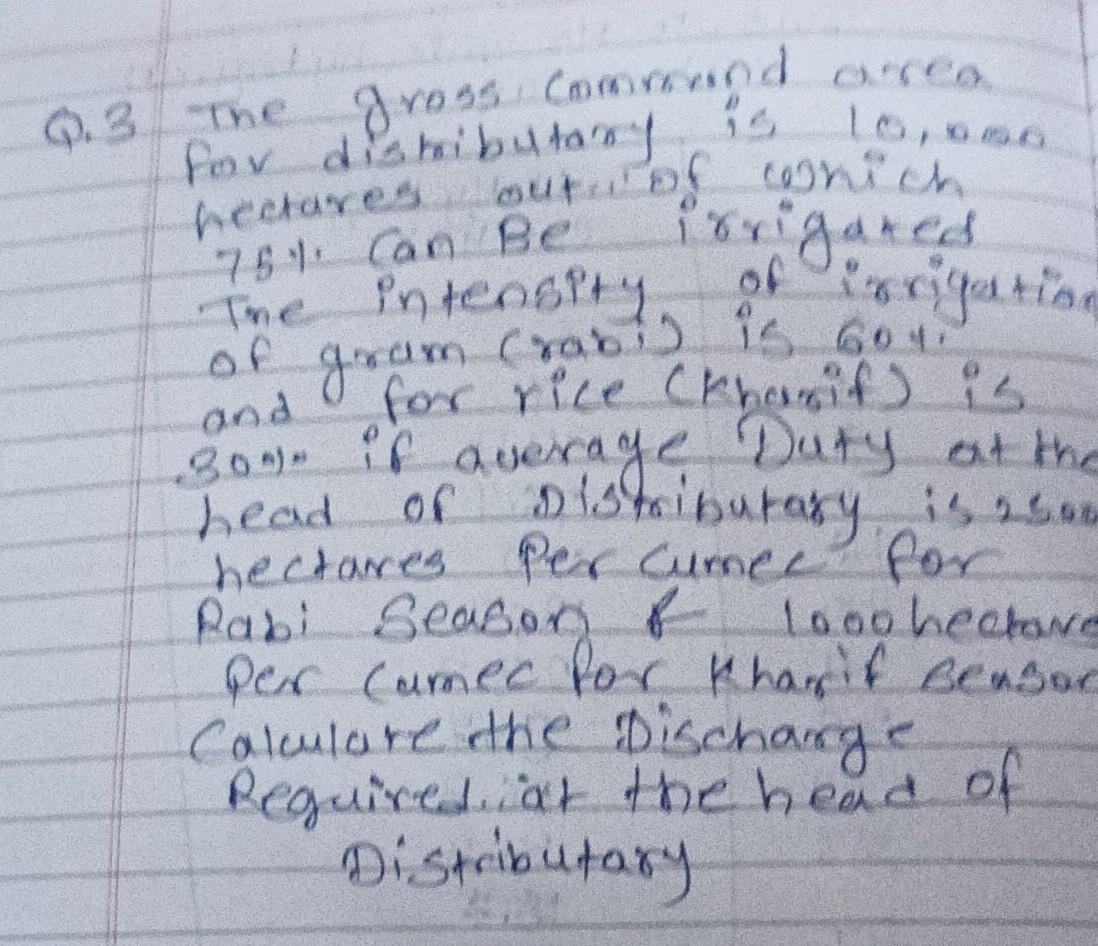 Q.3 The gross command area
for distributary is 10,000
hectares out of which
75% Can Be irrigated
The intensity of irrigation
of gram (rabi) is 60%
and for rice (Kharif) is
30% if average Duty at the
head of Distributary is 2500
hectares Per Cumec for
Rabi Season & 1000 hectare
Per Cumec for Kharif Season
Calculate the Discharge
Required at the head of
Distributary